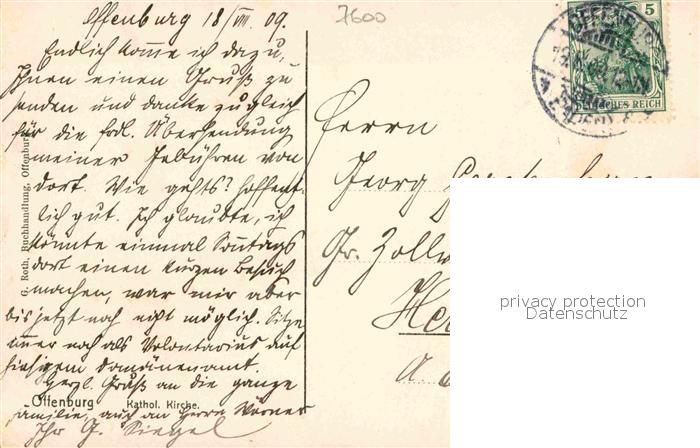 Offenburg 18/VIII. 09.
7600
Endlich komme ich dazu,
Ihnen einen Gruß zu
senden und danke zugleich
für die frdl. Übersendung
meiner Gebühren von
dort. Wie gehts? Hoffent-
lich gut. Ich glaubte, ich
könnte einmal Sonntags
dort einen kurzen Besuch
machen, war mir aber
bis jetzt noch nicht möglich. Sitze
immer noch als Volontarius auf
hiesigem Domänenamt.
Herzl. Gruß an die ganze
Familie, auch an Herrn Wörner
Ihr G. Siegel
G. Roth, Buchhandlung, Offenburg
Offenburg Kathol. Kirche.
5
DEUTSCHES REICH
Herrn
Georg
Gr. Zollv
He
a
privacy protection
Datenschutz